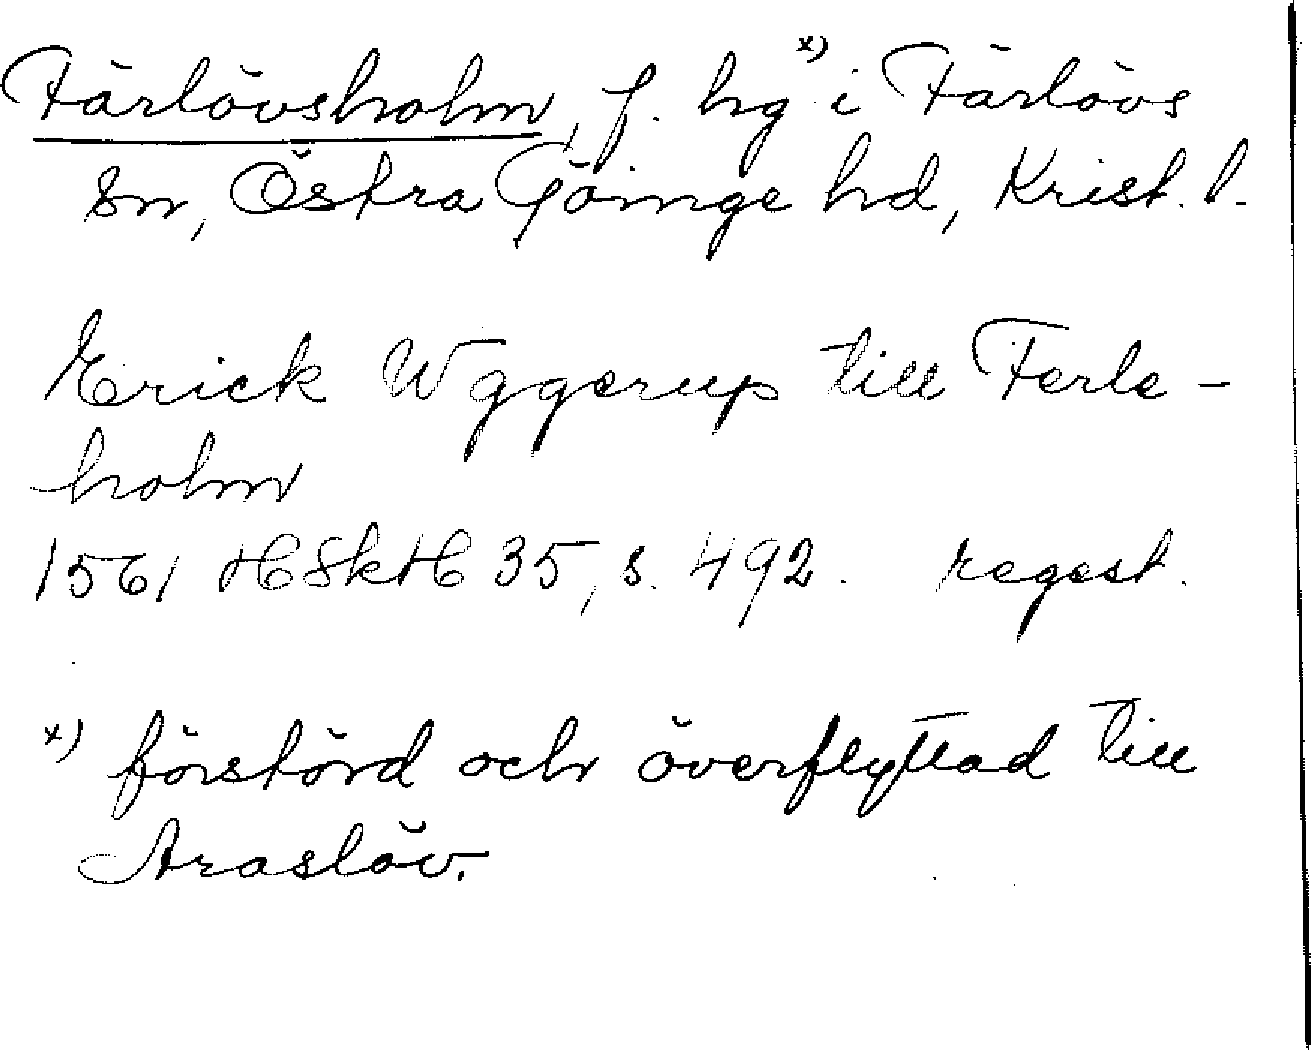 Färlövsholm, f. hg x) i Färlövs
sn, Östra Göinge hd, Krist. l.
Erick Wggerup till Ferle-
holm
1561 HSkH 35, s. 492. regest.
x) förstörd och överflyttad till
Araslöv.